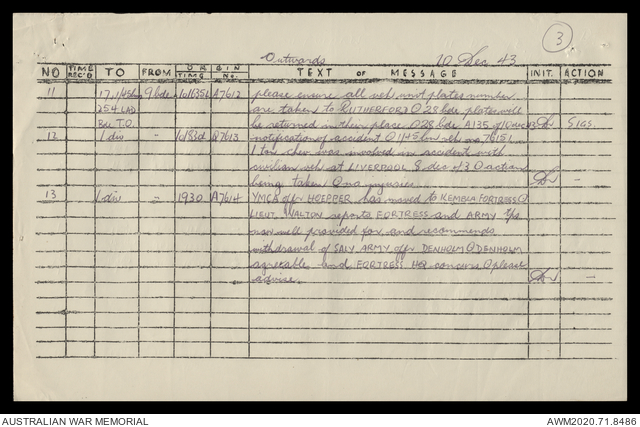 3
Outwards 10 Dec 43
NO TIME REC'D TO FROM ORIGIN TIME No. TEXT OF MESSAGE INIT. ACTION
11 9 bde 101635L A7612 please ensure all veh unit plates number
254 LAD are taken to RUTHERFORD O 28 bde plates will
Bde T.O. be returned in their place O 28 bde A135 of 10 dec SIGS.
12 1 div " A7613 notification of accident O veh no 76151
1 ton chev was involved in accident with
civilian veh at LIVERPOOL 8 dec 43 O action
being taken O no injuries
13 1 div " 1930 A7614 YMCA offr HOEPPER has moved to KEMBLA FORTRESS O
LIEUT. WALTON reports FORTRESS and ARMY tps
now well provided for and recommends
withdrawal of SALV ARMY offr DENHOLM O DENHOLM
agreeable and FORTRESS HQ concurs O please
advise.
AUSTRALIAN WAR MEMORIAL AWM2020.71.8486